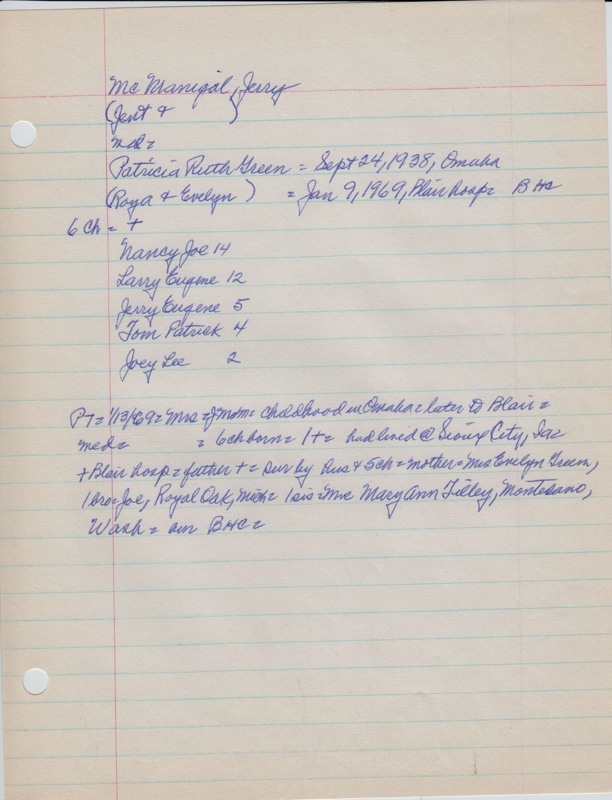 McManigal, Jerry
(Jent &           )
md =
Patricia Ruth Green = Sept 24, 1938, Omaha
(Roya & Evelyn )   = Jan 9, 1969, Blair hosp = BHC
6 ch = +
Nancy Joe 14
Larry Eugene 12
Jerry Eugene 5
Tom Patrick 4
Joey Lee 2
PT = 1/13/69 = Mrs = J McM = childhood in Omaha = later to Blair =
med =           = 6 ch born = 1 + = had lived @ Sioux City, Ia =
+ Blair hosp = father + = sur by hus & 5 ch = mother = Mrs Evelyn Green,
1 bro = Joe, Royal Oak, Mich = 1 sis = Mrs Mary Ann Tilley, Montesano,
Wash = BHC =